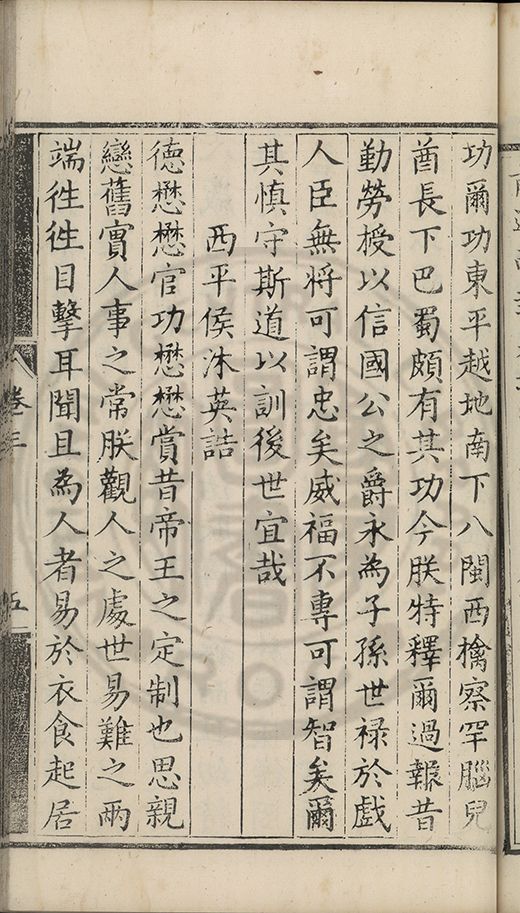 功爾功東平越地南下八閩西擒察罕腦兒
酋長下巴蜀頗有其功今朕特釋爾過報昔
勤勞授以信國公之爵永為子孫世祿於戲
人臣無將可謂忠矣威福不專可謂智矣爾
其慎守斯道以訓後世宜哉
西平侯沐英誥
德懋懋官功懋懋賞昔帝王之定制也思親
戀舊實人事之常朕觀人之處世易難之兩
端徃徃目擊耳聞且為人者易於衣食起居
卷三
五